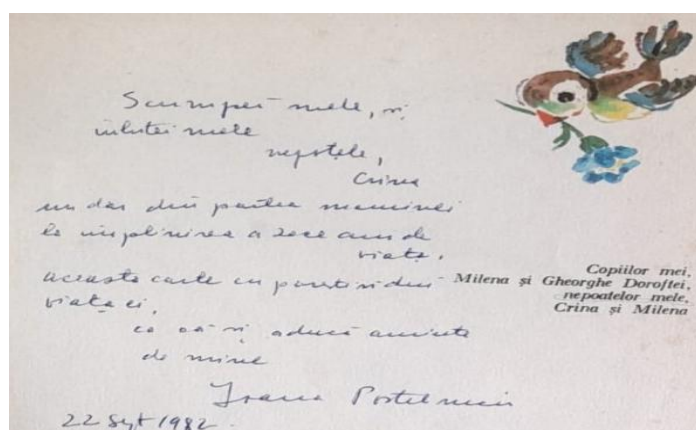 Scumpei mele, și
iubitei mele
nepoțele,
Crina
un dar din partea maminei
la împlinirea a zece ani de
viață,
aceasta carte cu povestiri din
viața ei,
ca să-și aducă aminte
de mine
Ioana Postelnicu
22 Sept 1982.
Copiilor mei,
Milena și Gheorghe Doroftei,
nepoatelor mele,
Crina și Milena